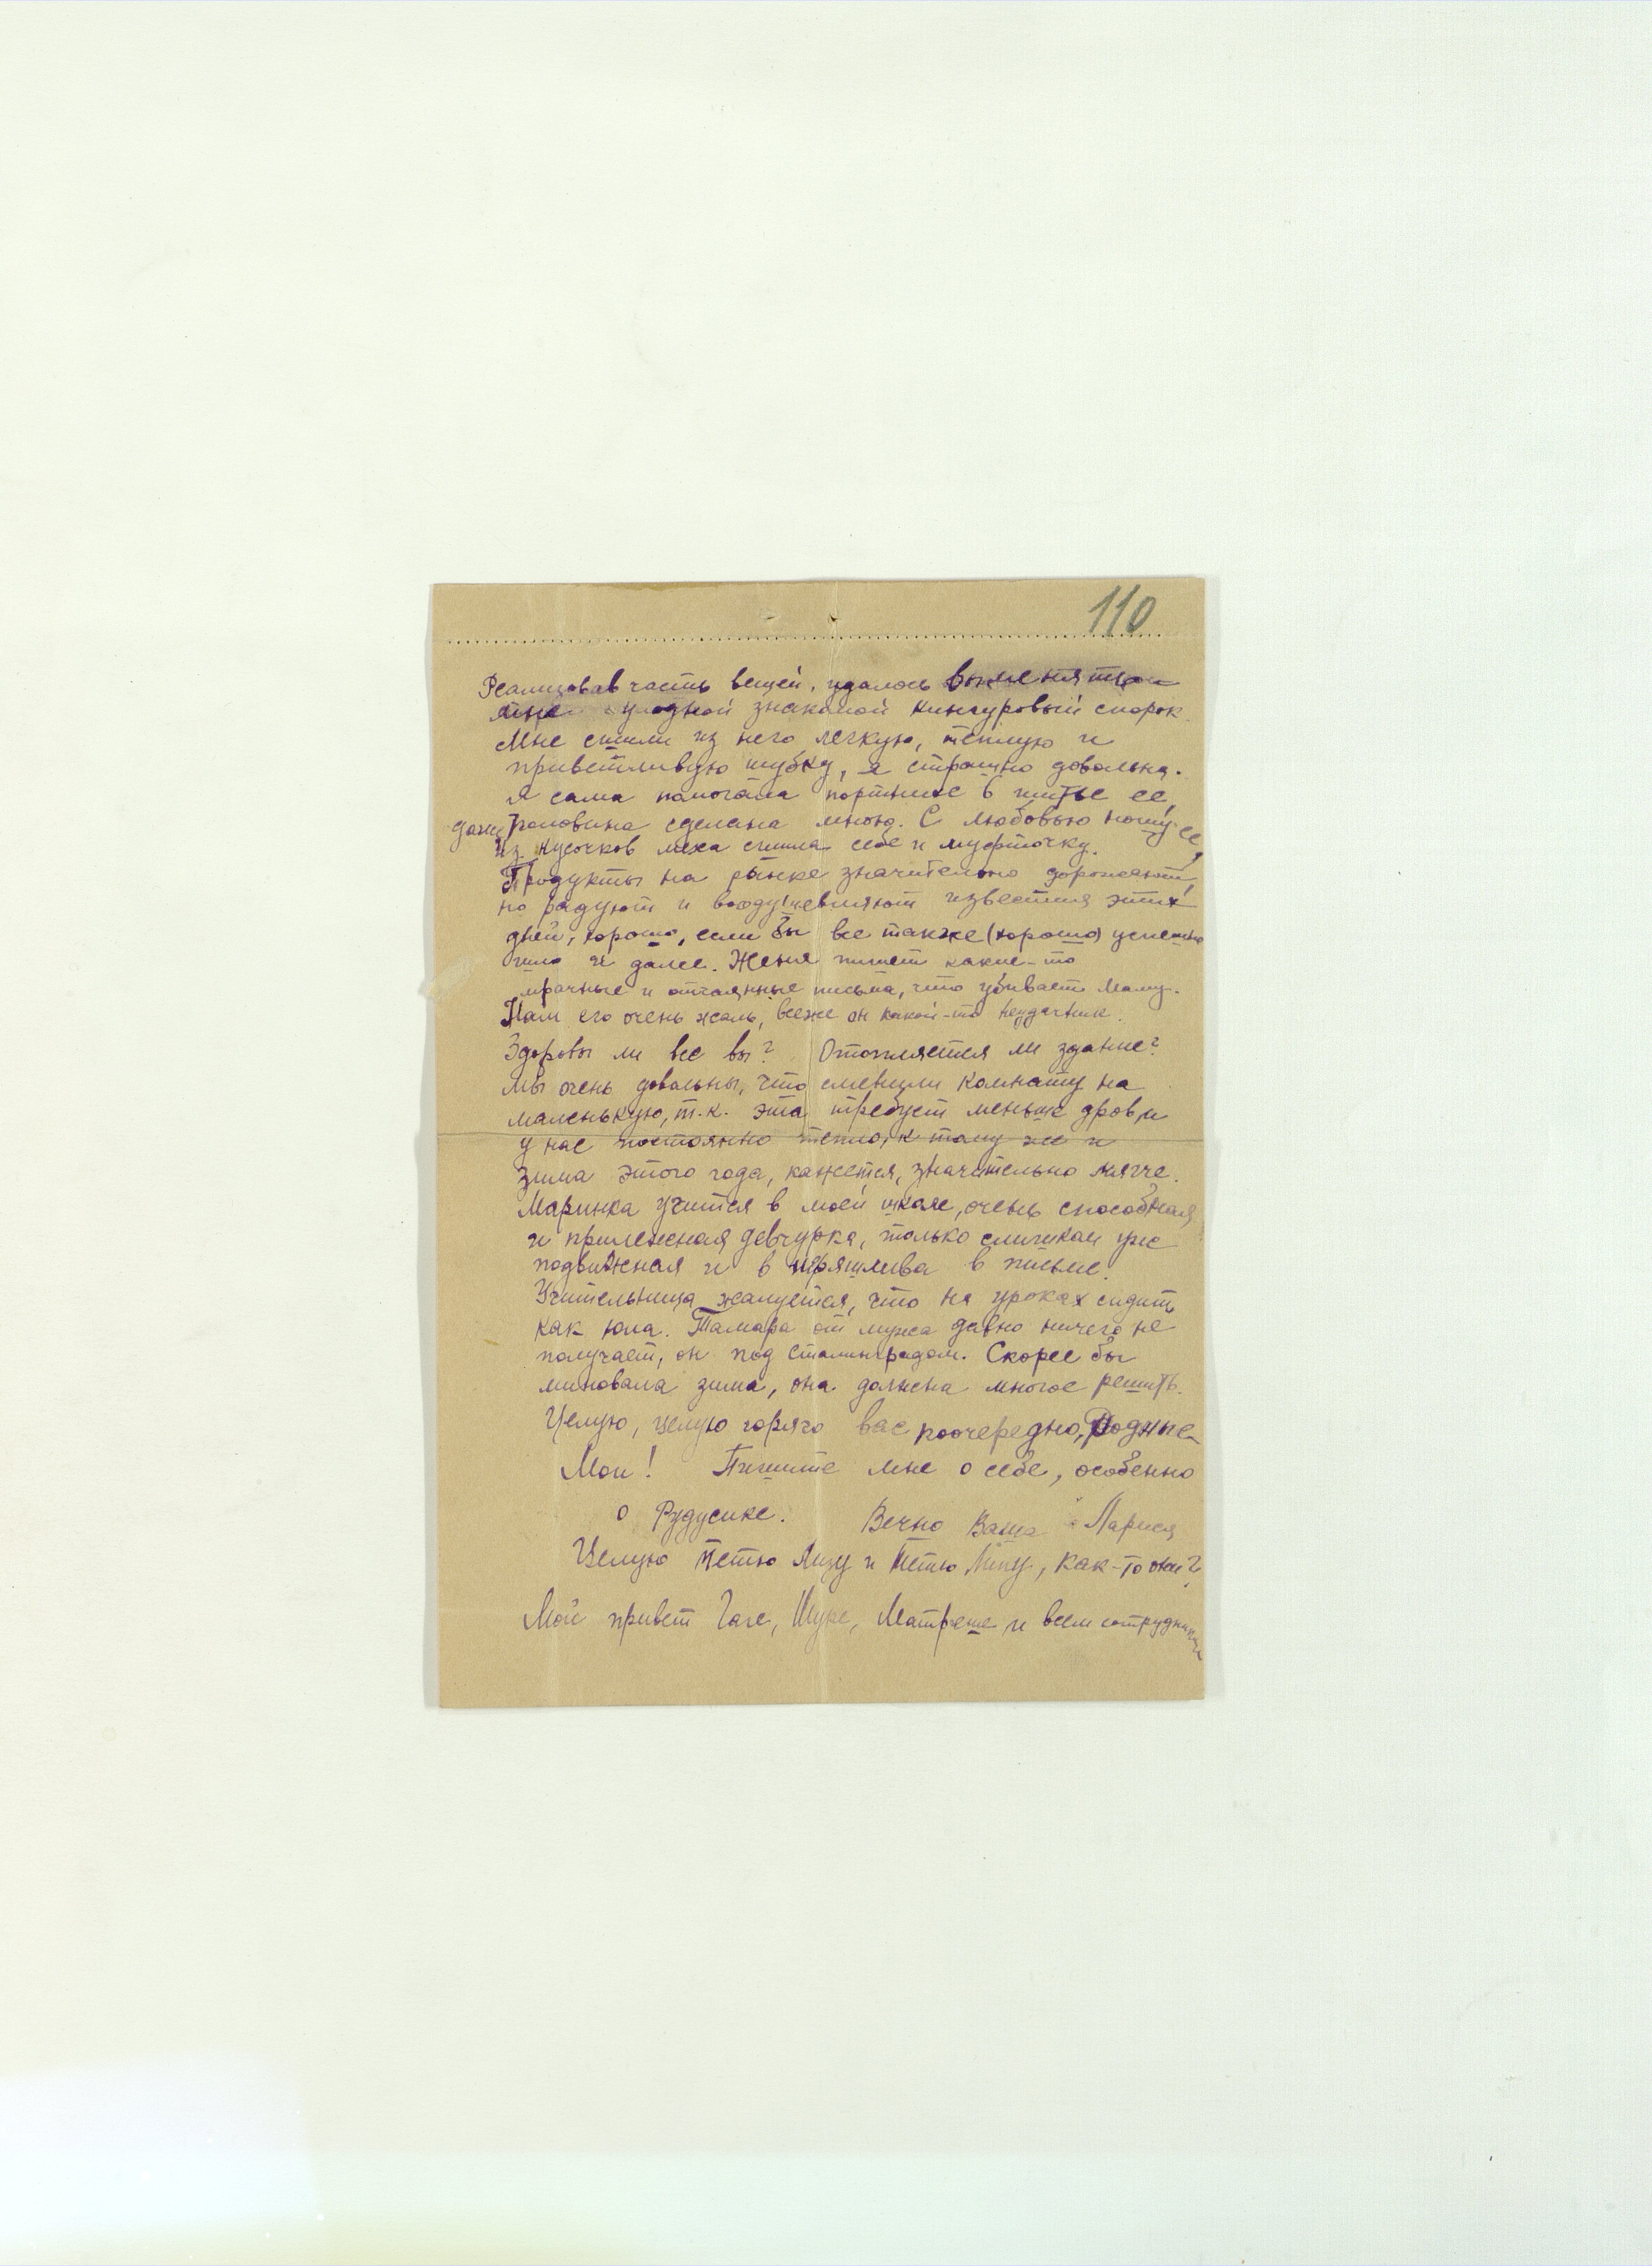 110
Реализовав часть вещей, удалось выменять
мне у одной знакомой кингуровый спорок.
Мне сшили из него легкую, теплую и
приветливую шубку, я страшно довольна.
Я сама помогала портнихе в шитье ее,
даже половина сделана мною. С любовью ношу ее,
Из кусочков меха сшила себе и муфточку.
Продукты на рынке значительно дорожают,
но радуют и воодушевляют известия этих
дней, хорошо, если бы все также (хорошо) успешно
шло и далее. Женя пишет какие-то
мрачные и отчаянные письма, что убивает маму.
Нам его очень жаль, всеже он какой-то неудачник.
Здоровы ли все вы? Отопляется ли здание?
Мы очень довольны, что сменили комнату на
маленькую, т.к. эта требует меньше дров, и
у нас постоянно тепло, к тому же и
зима этого года, кажется, значительно мягче.
Маринка учится в моей школе, очень способная
и прилежная девчурка, только слишком уж
подвижная и в неряшлива в письме.
Учительница жалуется, что на уроках сидит
как юла. Тамара от мужа давно ничего не
получает, он под Сталинградом. Скорее бы
миновала зима, она должна многое решить.
Целую, целую горячо вас поочередно, Родные
Мои! Пишите мне о себе, особенно
о Рудусике. Вечно Ваша Лариса
Целую тетю Лизу и тетю Липу, как-то они?
Мой привет Гале, Шуре, Матреше и всем сотрудникам